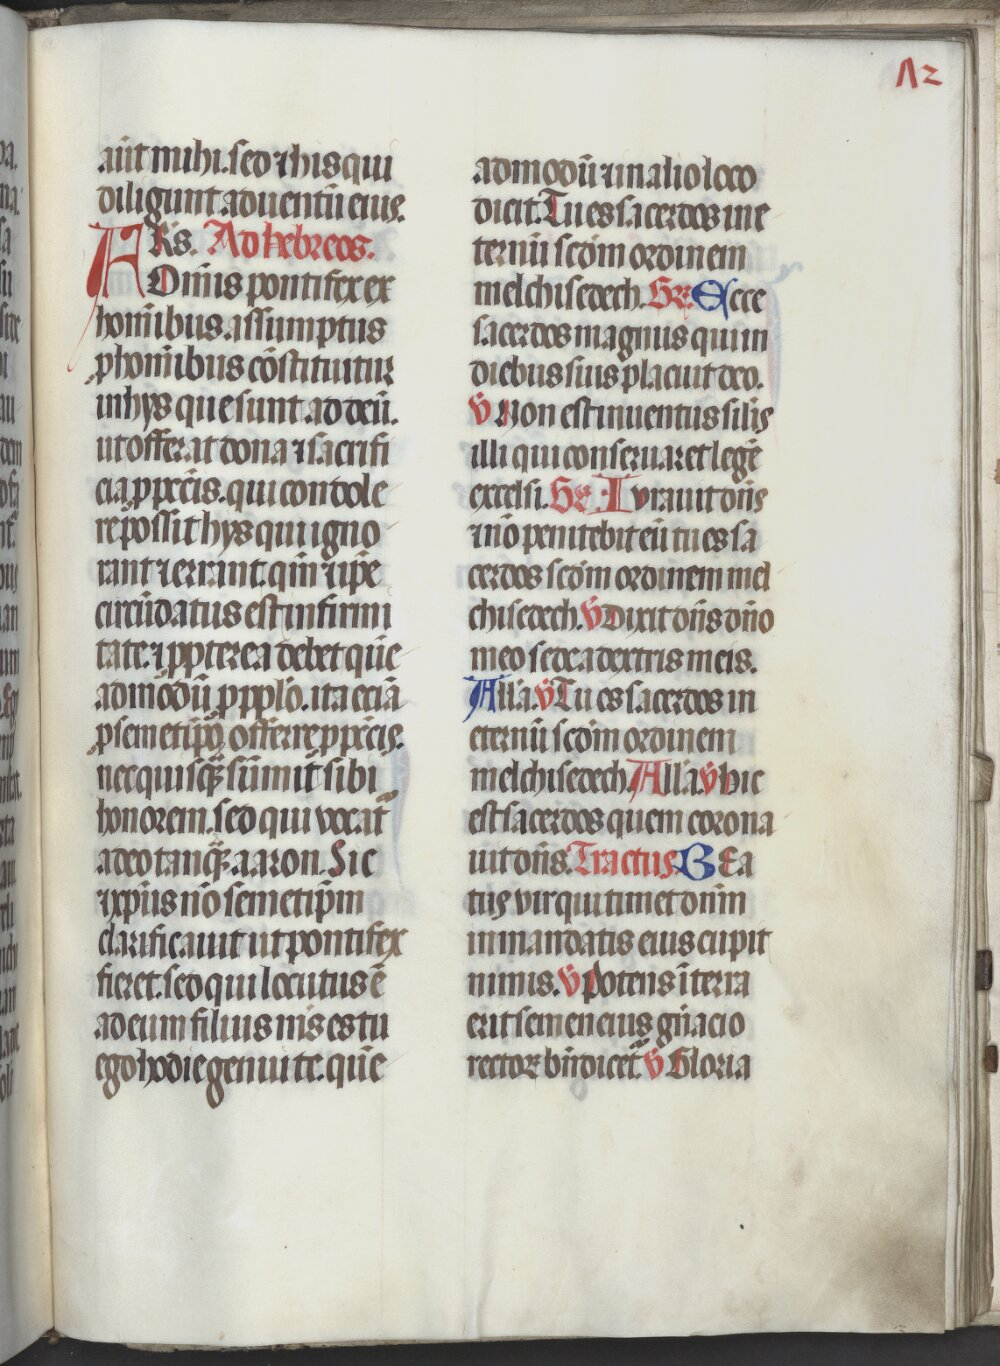 Λ2
aūt mihi. sed ⁊ his qui
diligunt aduentū eius.
FRs. Ad hebreos.
Om̄is pontifex ex
hom̄ibus assumptus
ꝓ hom̄ibus cōstituitur
in hys que sunt ad deū.
ut offerat dona ⁊ sacrifi
cia ꝓ pctīs. qui condole
re possit hys qui igno
rant ⁊ errant. qm̄ ⁊ ip̄e
circūdatus est infirmi
tate. ⁊ ꝓpterea debet quē
admodū ꝓ pplō. ita eciā
ꝓ semetip̄o offerre ꝓ pctīs.
nec quisq̄ꝫ sūmit sibi
honorem. sed qui vocat᷑
a deo tanq̄ꝫ aaron. Sic
⁊ xp̄us nō semetip̄m
clarificauit ut pontifex
fieret. sed qui locutus ē
ad eum filius m̄s es tu
ego hodie genui te. quē
admodū ⁊ in alio loco
dicit. Tu es sacerdos in e
ternū scdm̄ ordinem
melchisedech. Gr̄ Ecce
sacerdos magnus qui in
diebus suis placuit deo.
V̄ Non est inuentus sil̄is
illi qui conseruaret legē
excelsi. Gr̄. Iurauit dn̄s
⁊ nō penitebit eū tu es sa
cerdos scdm̄ ordinem mel
chisedech. V̄ Dixit dn̄s dn̄o
meo sede a dextris meis.
All'a. V̄ Tu es sacerdos in
eternū scdm̄ ordinem
melchisedech. All'a. V̄ hic
est sacerdos quem corona
uit dn̄s. Tractus BEa
tus vir qui timet dn̄m
in mandatis eius cupit
nimis. V̄ potens ī terra
erit semen eius gn̄acio
rectoꝝ bn̄dicet᷑. V̄ Gloria